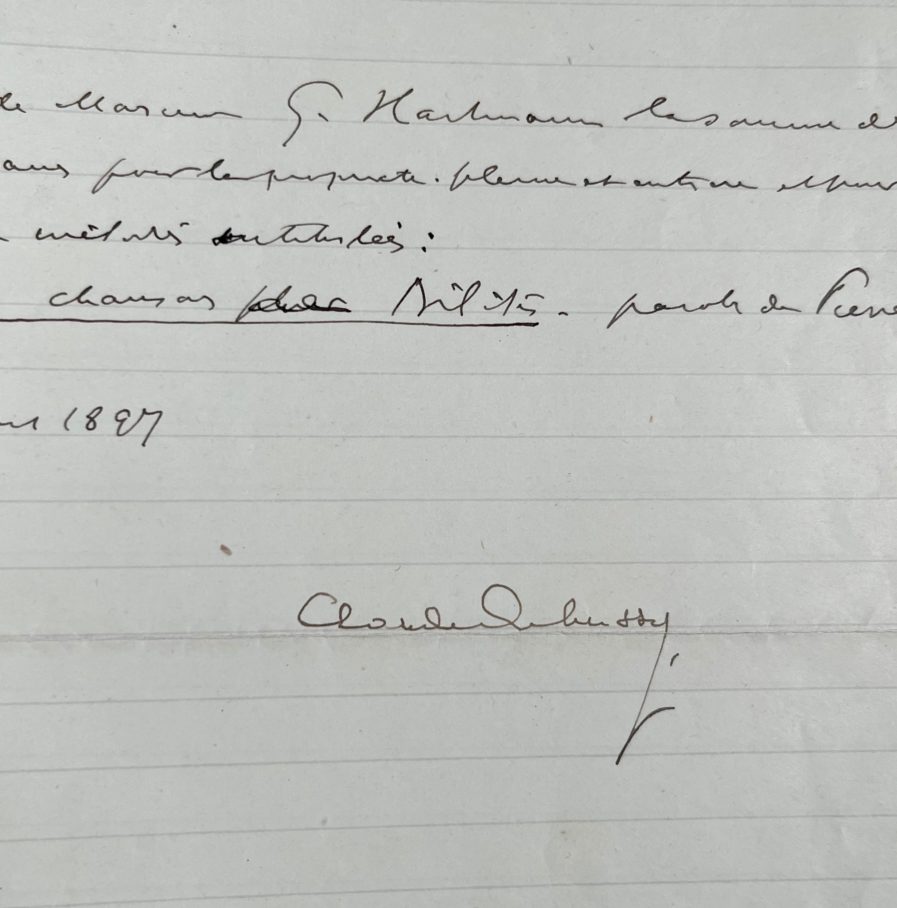 de Monsieur G. Hartmann la somme de
pour la propriété pleine et entière et pour
mélodies intitulées :
chansons de Bilitis . paroles de Pierre
1897
Claude Debussy